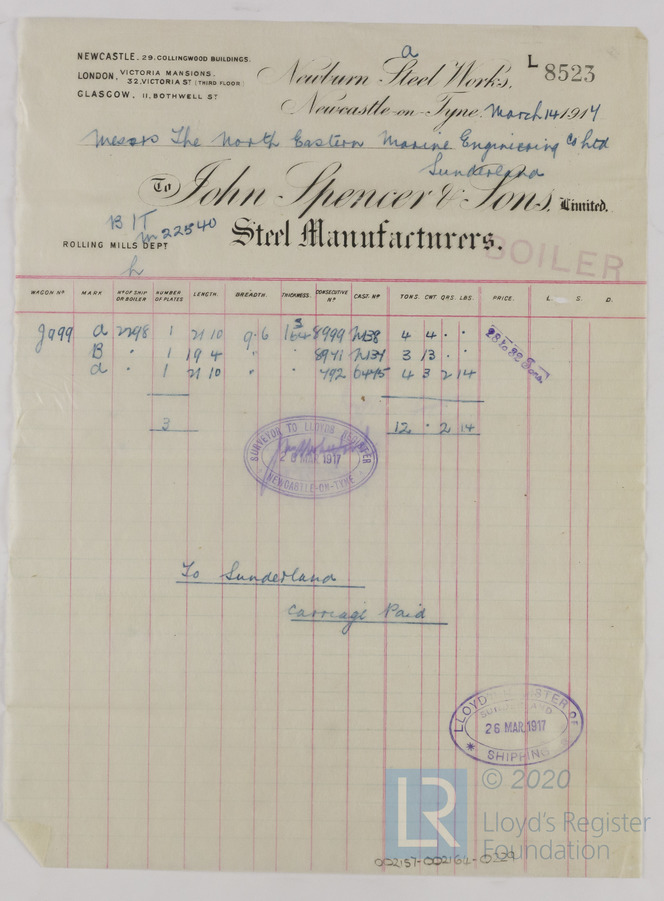 NEWCASTLE, 29, COLLINGWOOD BUILDINGS.
LONDON, VICTORIA MANSIONS,
32, VICTORIA ST (THIRD FLOOR)
GLASGOW, 11, BOTHWELL ST
a
Newburn Steel Works,
L 8523
Newcastle-on-Tyne. March 14 1917
Messrs The North Eastern Marine Engineering Co Ltd
Sunderland
To John Spencer & Sons, Limited.
Steel Manufacturers.
B 1T
m 22540
ROLLING MILLS DEPT
h
BOILER
WAGON No MARK No OF SHIP OR BOILER NUMBER OF PLATES LENGTH. BREADTH. THICKNESS. CONSECUTIVE No CAST. No TONS. CWT. QRS. LBS. PRICE. L. S. D.
a 2298 1 21 10 9 6 8999 4 4 . .
B " 1 19 4 " " 3 13 . .
a " 1 21 10 " " 792 6475 4 3 2 14
28 to 32 Tons
3 12 . 2 14
SURVEYOR TO LLOYDS REGISTER
26 MAR 1917
NEWCASTLE-ON-TYNE
To Sunderland
Carriage Paid
LLOYD'S REGISTER OF
SUNDERLAND
26 MAR 1917
SHIPPING
LR
© 2020
Lloyd's Register
Foundation
002157-002164-0229